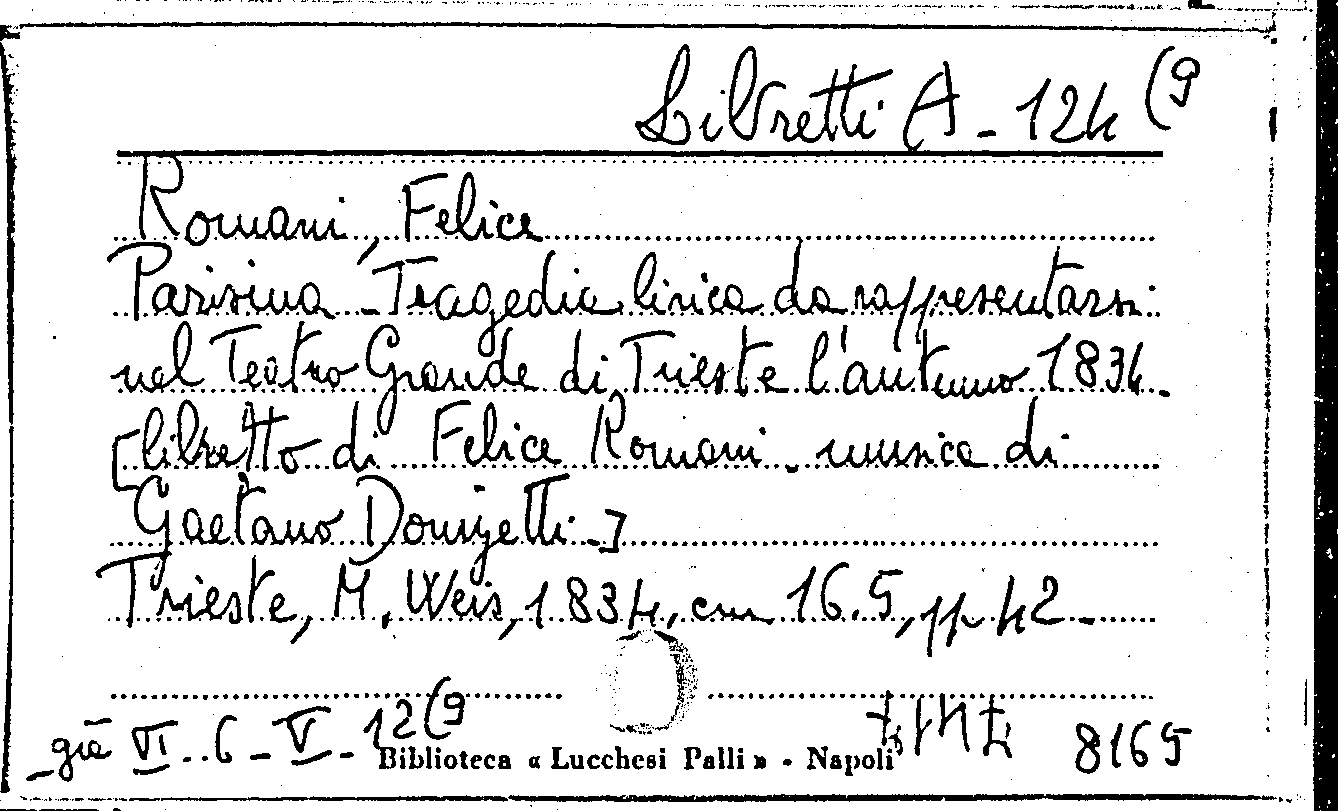 Libretti A - 124 (9
Romani, Felice
Parisina - Tragedia lirica da rappresentarsi
nel Teatro Grande di Trieste l'autunno 1834.
[libretto di Felice Romani - musica di
Gaetano Donizetti -]
Trieste, M. Weis, 1834, cm 16.5, pp 42 -
- già VI .. 6 - V - 12 (9
Biblioteca « Lucchesi Palli » - Napoli
8165